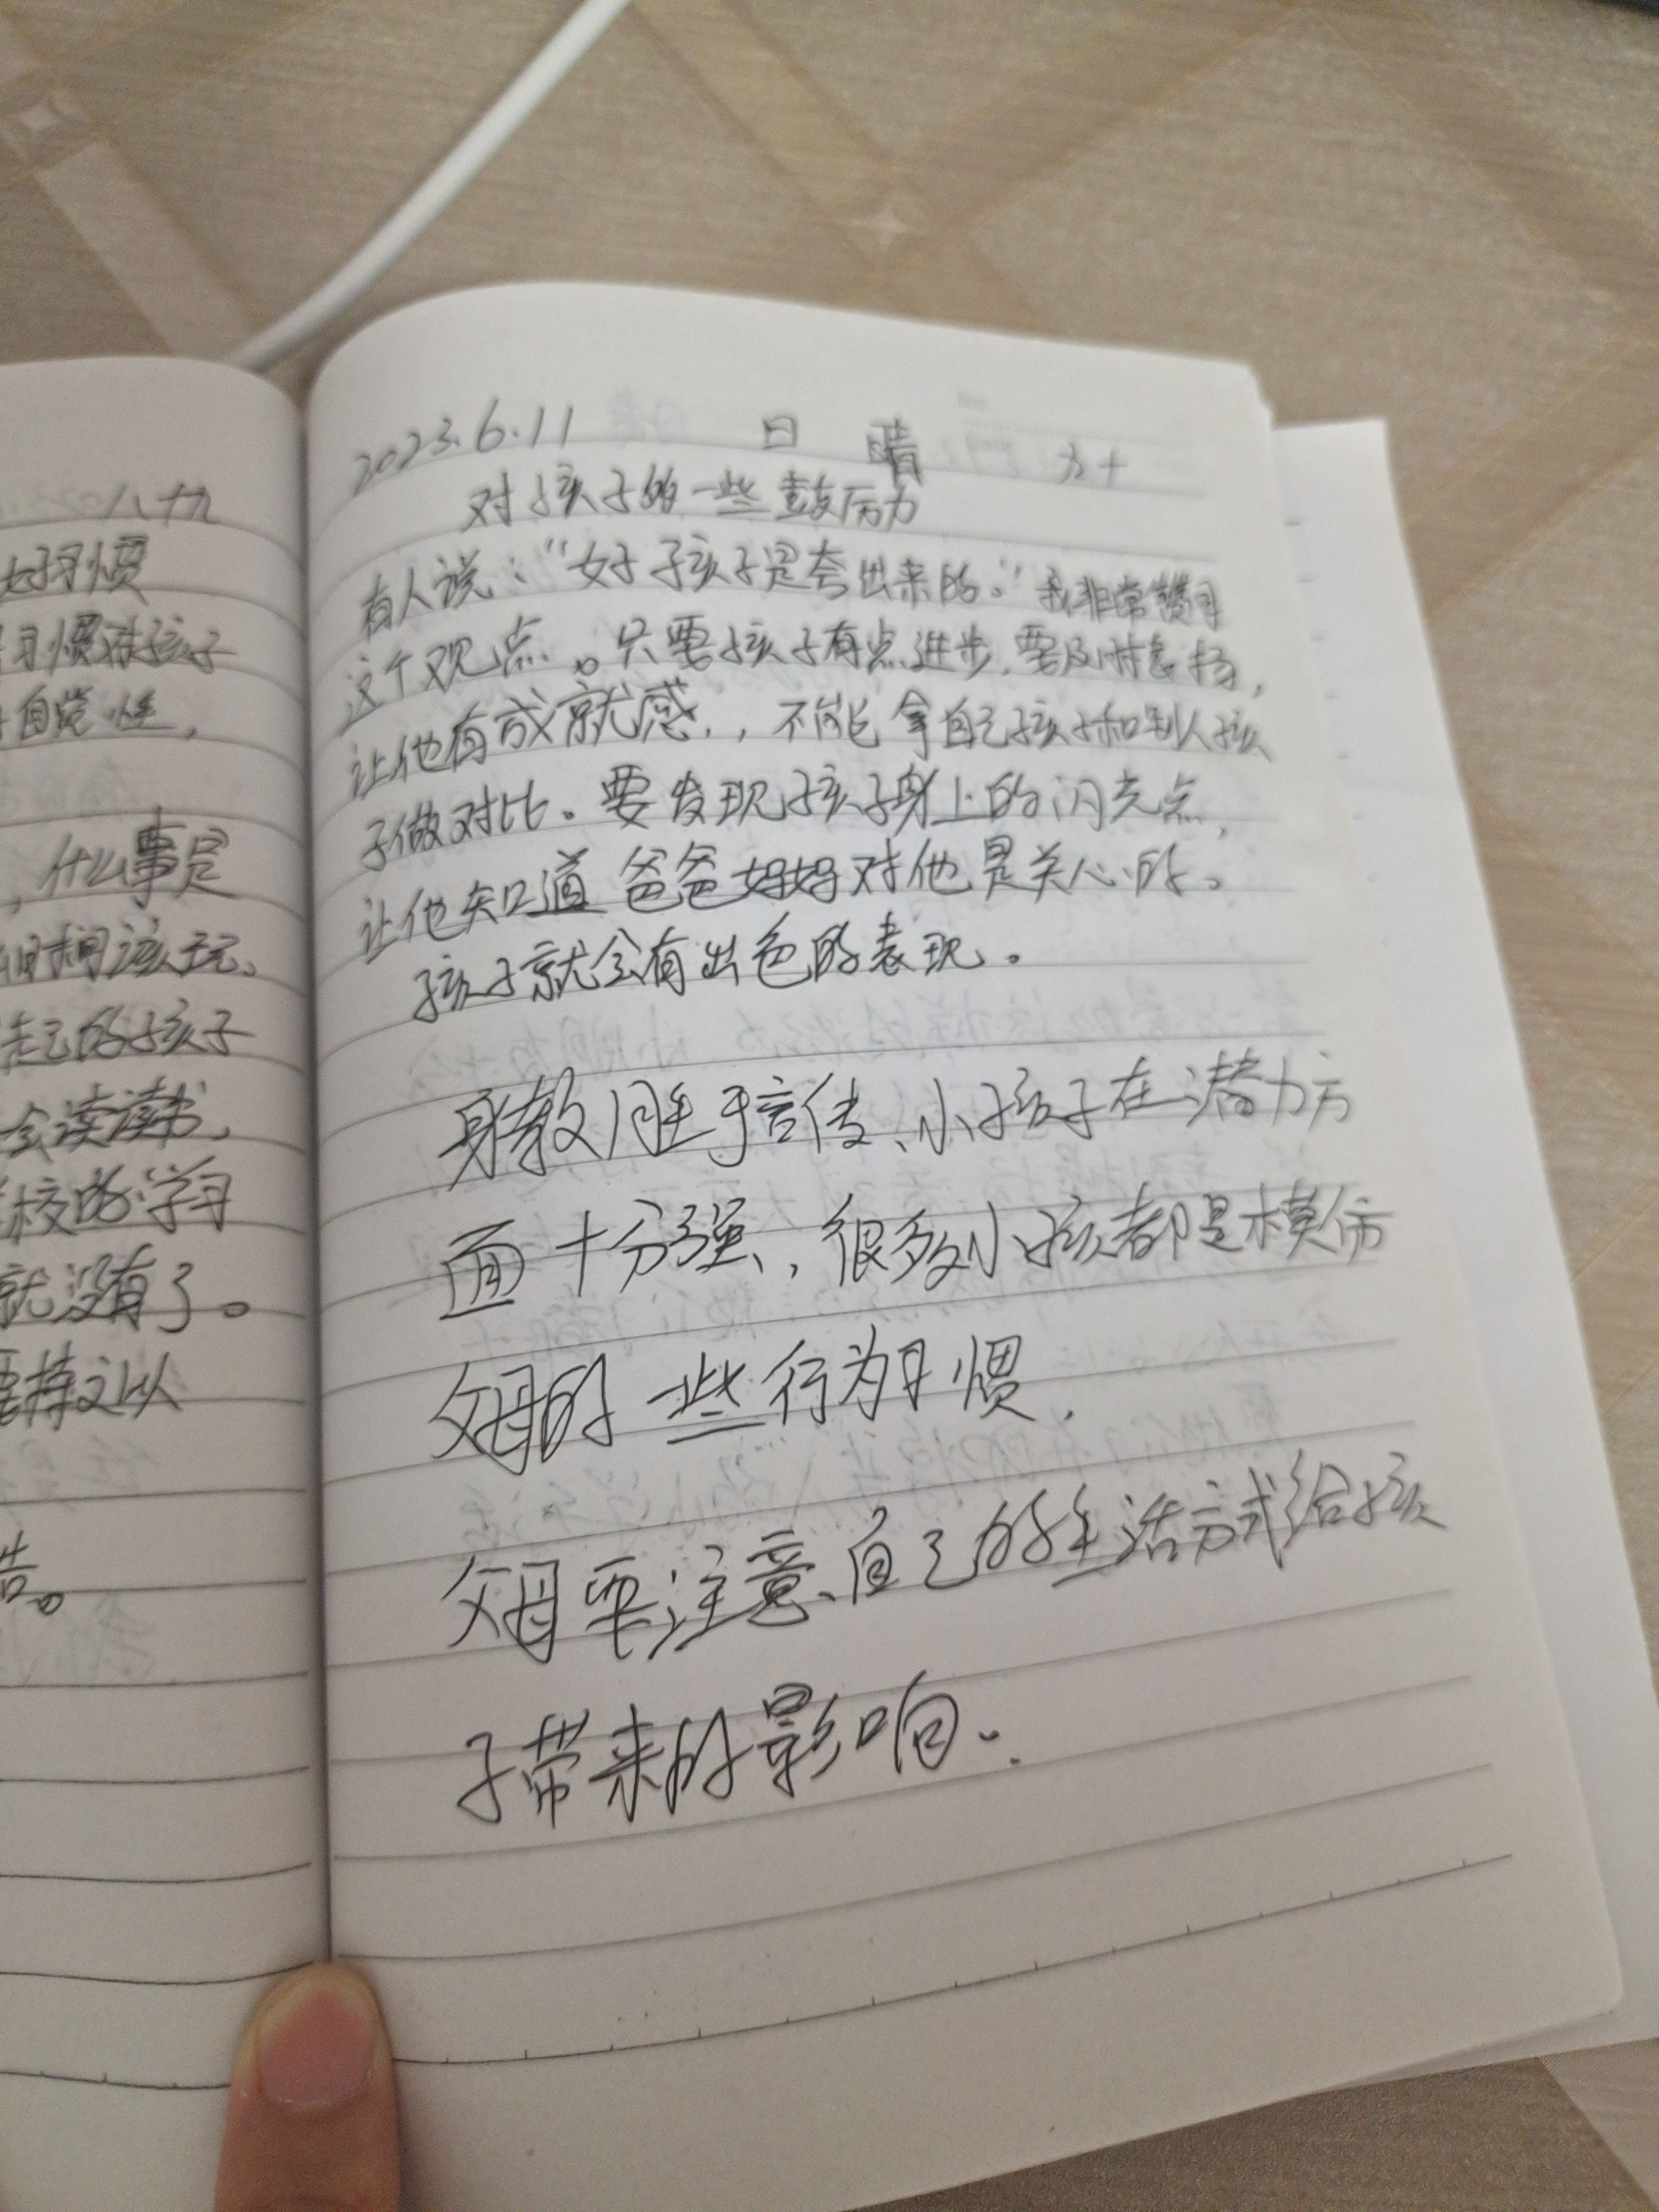 八十九
好习惯
习惯对孩子
自觉性，
，什么事是
时间该玩、
走己的孩子
会读读书，
校的学习
就没有了。
要持之以
告。
2023.6.11 日 晴 九十
对孩子的一些鼓励
有人说：“好孩子是夸出来的。”我非常赞同
这个观点。只要孩子有点进步，要及时表扬，
让他有成就感，，不能拿自己孩子和别人孩
子做对比。要发现孩子身上的闪光点，
让他知道爸爸妈妈对他是关心的。
孩子就会有出色的表现。
身教胜于言传、小孩子在潜力方
面十分强，很多小孩都是模仿
父母的一些行为习惯，
父母要注意自己的生活方式给孩
子带来的影响。